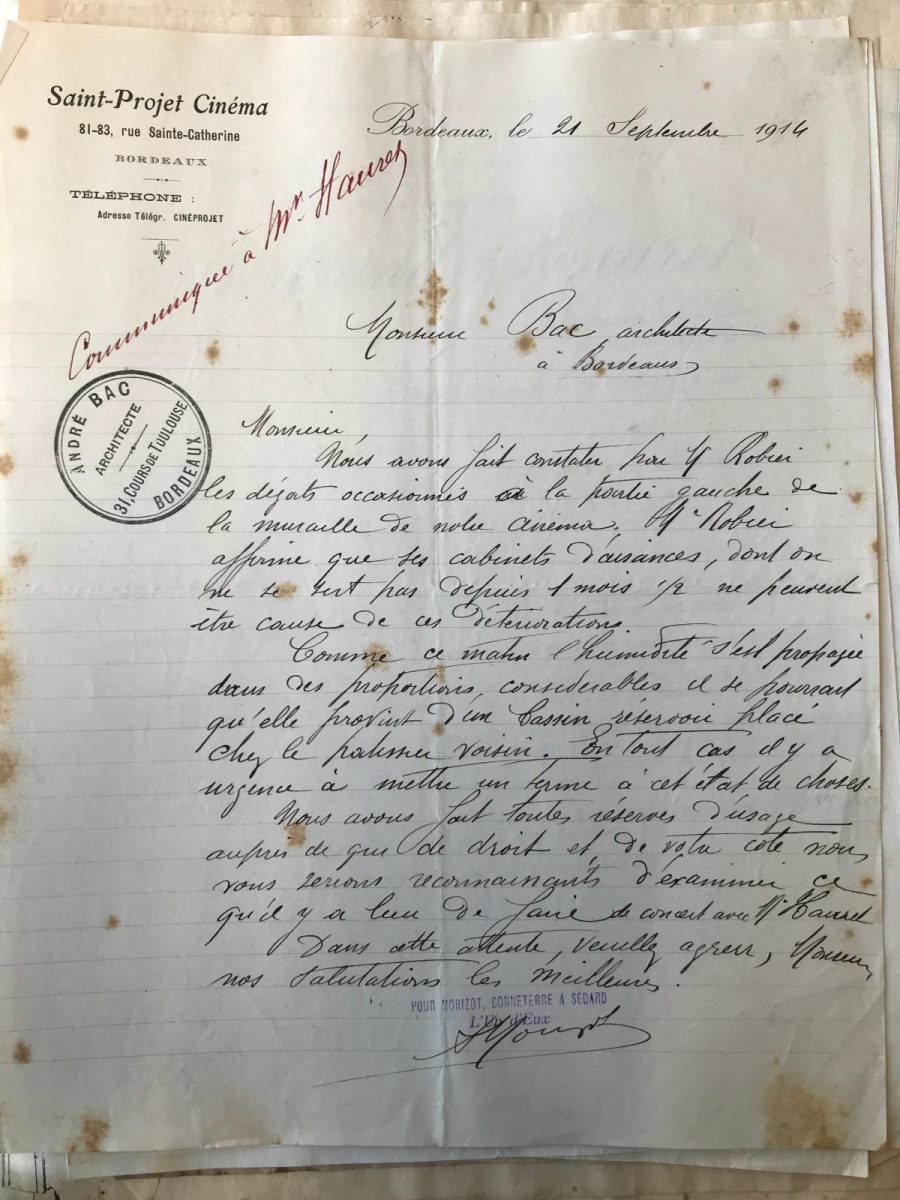 Saint-Projet Cinéma
81-83, rue Sainte-Catherine
BORDEAUX
TÉLÉPHONE :
Adresse Télégr. CINÉPROJET
Bordeaux, le 21 Septembre 1914
Communiqué à Mr. Hauret
Monsieur Bac architecte
à Bordeaux
ANDRÉ BAC
ARCHITECTE
31, COURS DE TOULOUSE
BORDEAUX
Monsieur
Nous avons fait constater par Mr Robin
les dégats occasionnés à la partie gauche de
la muraille de notre cinéma. Mr Robin
affirme que ses cabinets d'aisances, dont on
ne se sert pas depuis 1 mois 1/2 ne peuvent
être cause de ces déteriorations
Comme ce matin l'humidité s'est propagée
dans des proportions considerables il se pourrait
qu'elle provint d'un bassin réservoir placé
chez le patissier voisin. En tout cas il y a
urgence à mettre un terme à cet état de choses.
Nous avons fait toutes réserves d'usage
auprès de qui de droit et de votre coté nous
vous serions reconnaissants d'examiner ce
qu'il y a lieu de faire de concert avec Mr Hauret
Dans cette attente, veuillez agreer, Monsieur,
nos salutations les meilleures.
POUR MORIZOT, CONNETERRE & SÉDARD
L'Un d'Eux